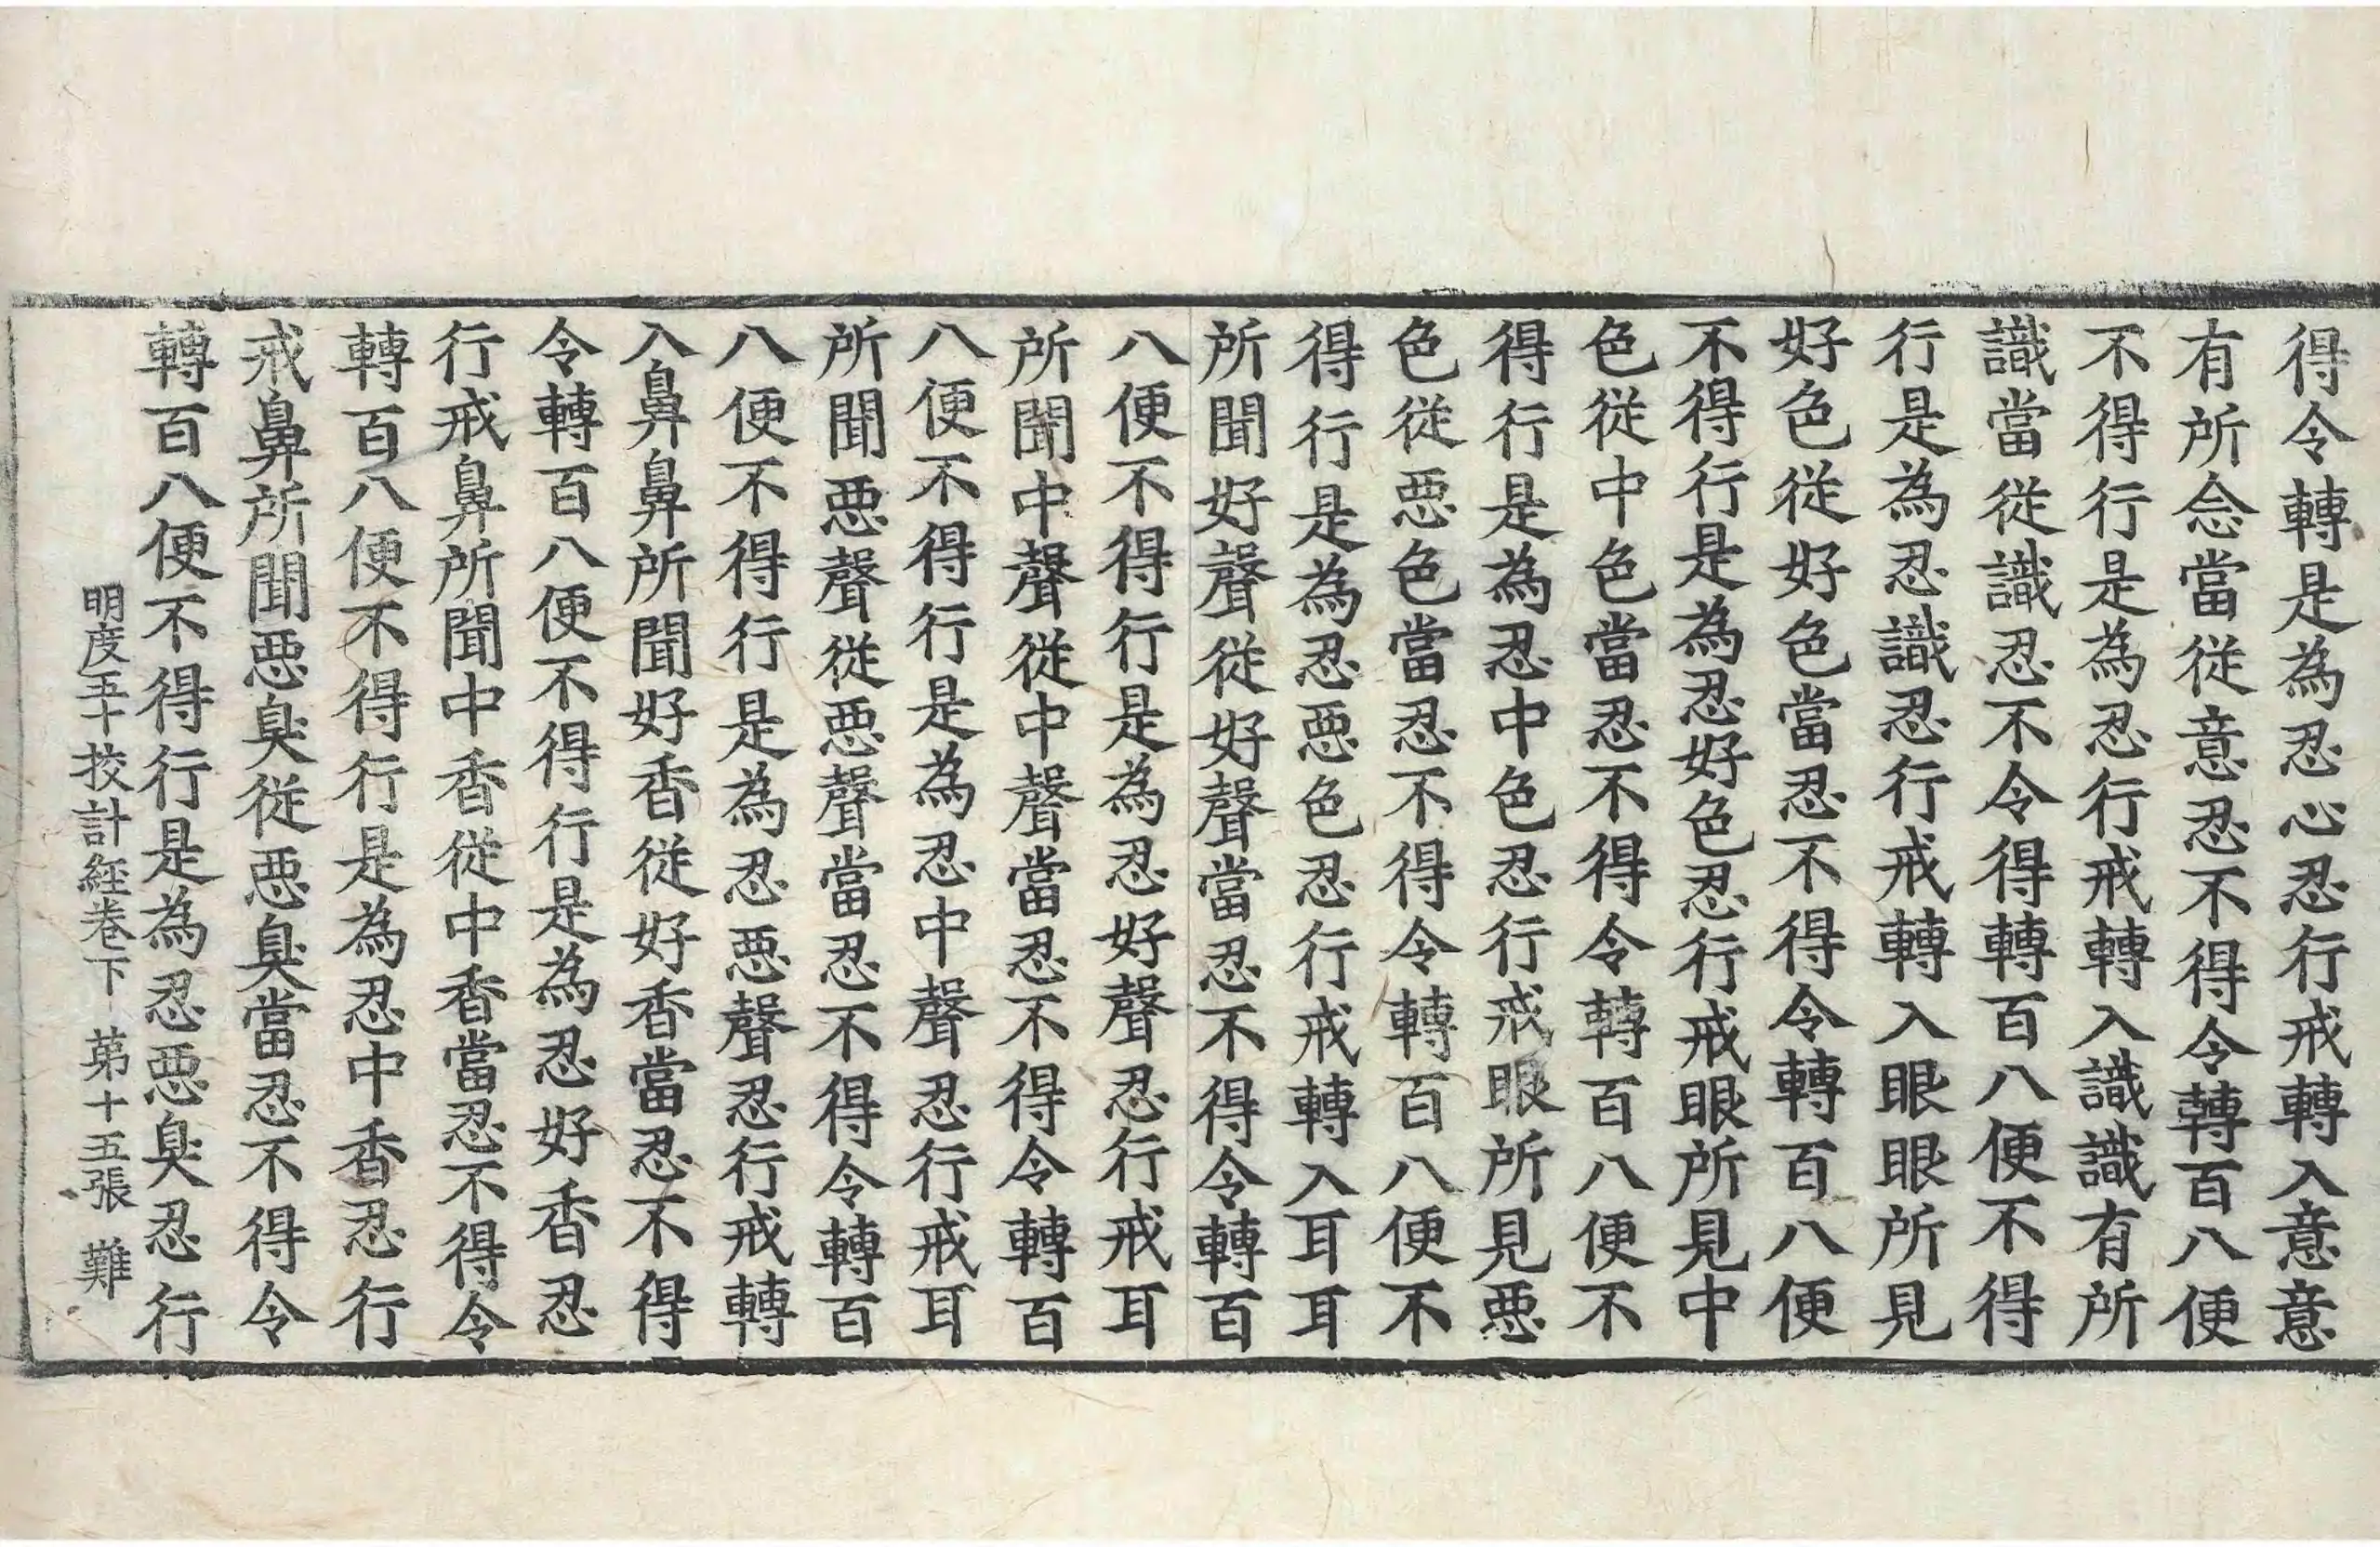 得令轉是為忍心忍行戒轉入意意
有所念當從意忍不得令轉百八便
不得行是為忍行戒轉入識識有所
識當從識忍不令得轉百八便不得
行是為忍識忍行戒轉入眼眼所見
好色從好色當忍不得令轉百八便
不得行是為忍好色忍行戒眼所見中
色從中色當忍不得令轉百八便不
得行是為忍中色忍行戒眼所見惡
色從惡色當忍不得令轉百八便不
得行是為忍惡色忍行戒轉入耳耳
所聞好聲從好聲當忍不得令轉百
八便不得行是為忍好聲忍行戒耳
所聞中聲從中聲當忍不得令轉百
八便不得行是為忍中聲忍行戒耳
所聞惡聲從惡聲當忍不得令轉百
八便不得行是為忍惡聲忍行戒轉
入鼻鼻所聞好香從好香當忍不得
令轉百八便不得行是為忍好香忍
行戒鼻所聞中香從中香當忍不得令
轉百八便不得行是為忍中香忍行
戒鼻所聞惡臭從惡臭當忍不得令
轉百八便不得行是為忍惡臭忍行
明度五十挍計經卷下 苐十五張 難